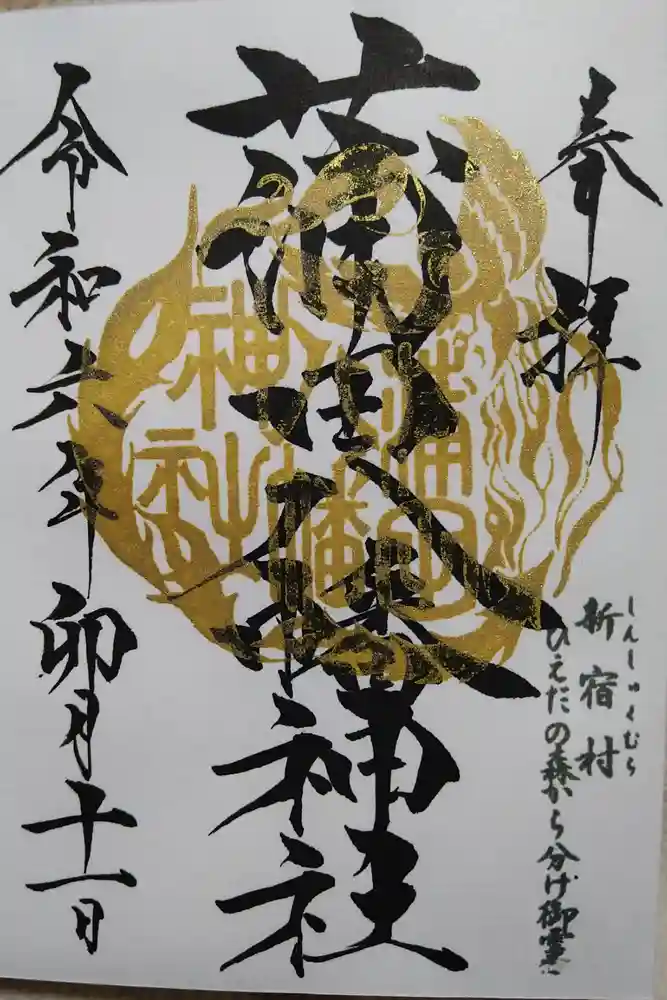 奉拝
しんしゅくむら
新宿村
ひえだの森から分け御霊
蒲田八幡神社
蒲田
八幡
神社
令和六年卯月十一日